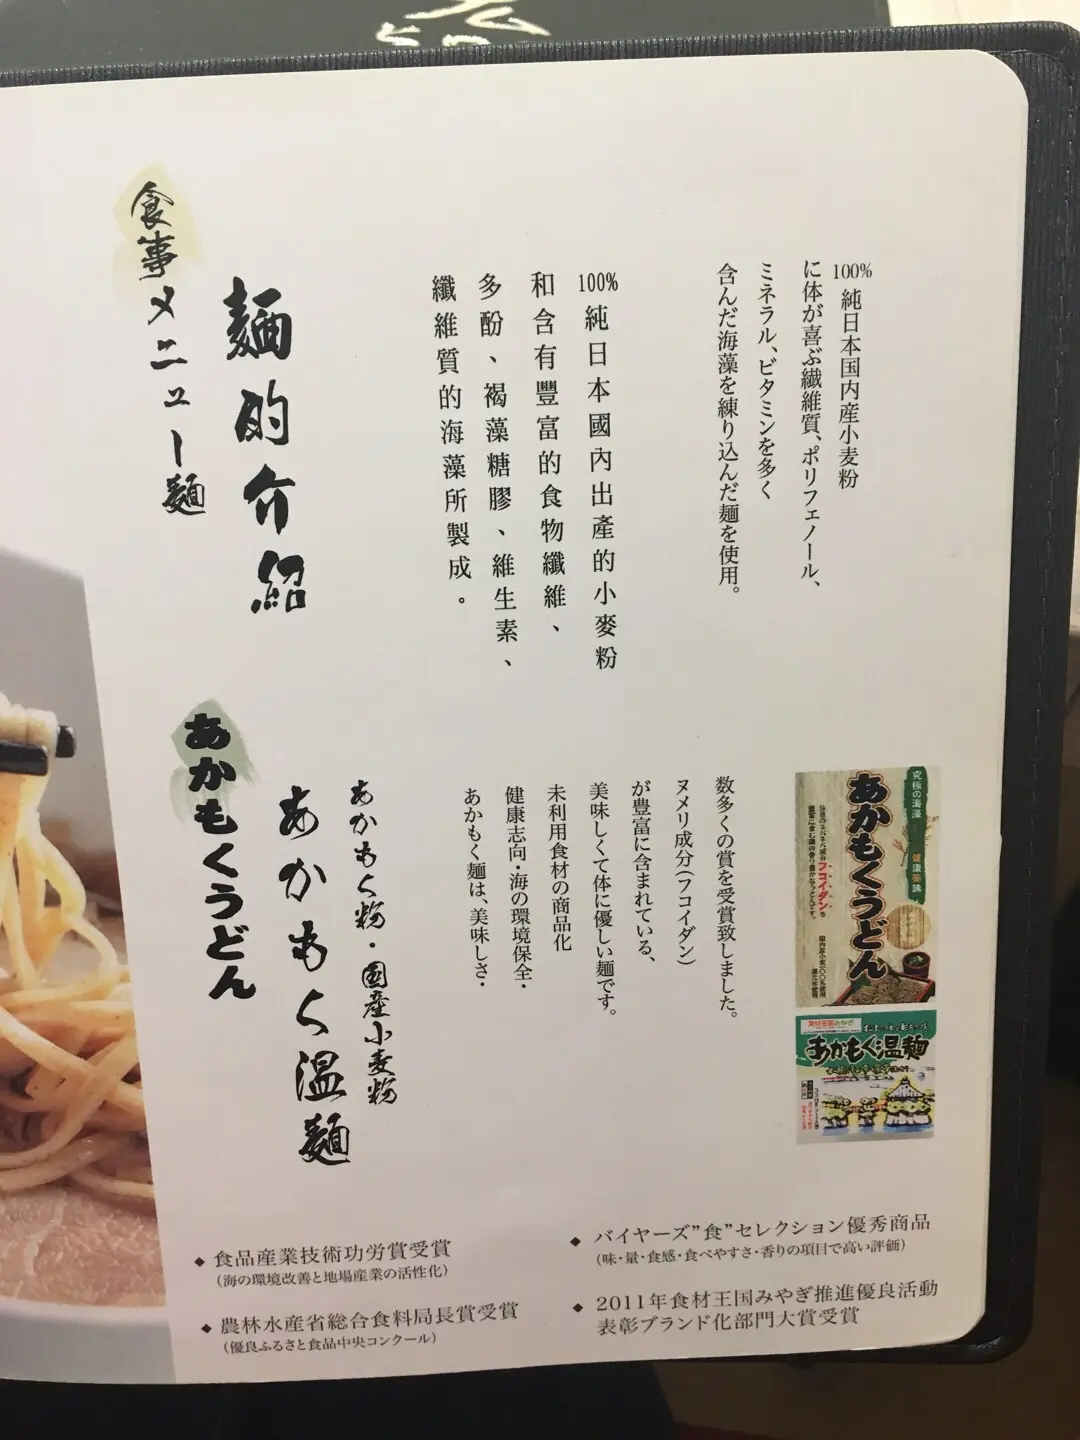 100% 純日本国内産小麦粉
に体が喜ぶ繊維質、ポリフェノール、
ミネラル、ビタミンを多く
含んだ海藻を練り込んだ麺を使用。
100%純日本國內出產的小麥粉
和含有豐富的食物纖維、
多酚、褐藻糖膠、維生素、
纖維質的海藻所製成。
麵的介紹
食事メニュー麺
究極の海藻
健康美味
あかもくうどん
あかもく温麺
数多くの賞を受賞致しました。
ヌメリ成分(フコイダン)
が豊富に含まれている、
美味しくて体に優しい麺です。
未利用食材の商品化
健康志向・海の環境保全・
あかもく麺は、美味しさ・
あかもく粉・国産小麦粉
あかもく温麺
あかもくうどん
◆ 食品産業技術功労賞受賞
(海の環境改善と地場産業の活性化)
◆ 農林水産省総合食料局長賞受賞
(優良ふるさと食品中央コンクール)
◆ バイヤーズ”食”セレクション優秀商品
(味・量・食感・食べやすさ・香りの項目で高い評価)
◆ 2011年食材王国みやぎ推進優良活動
表彰ブランド化部門大賞受賞